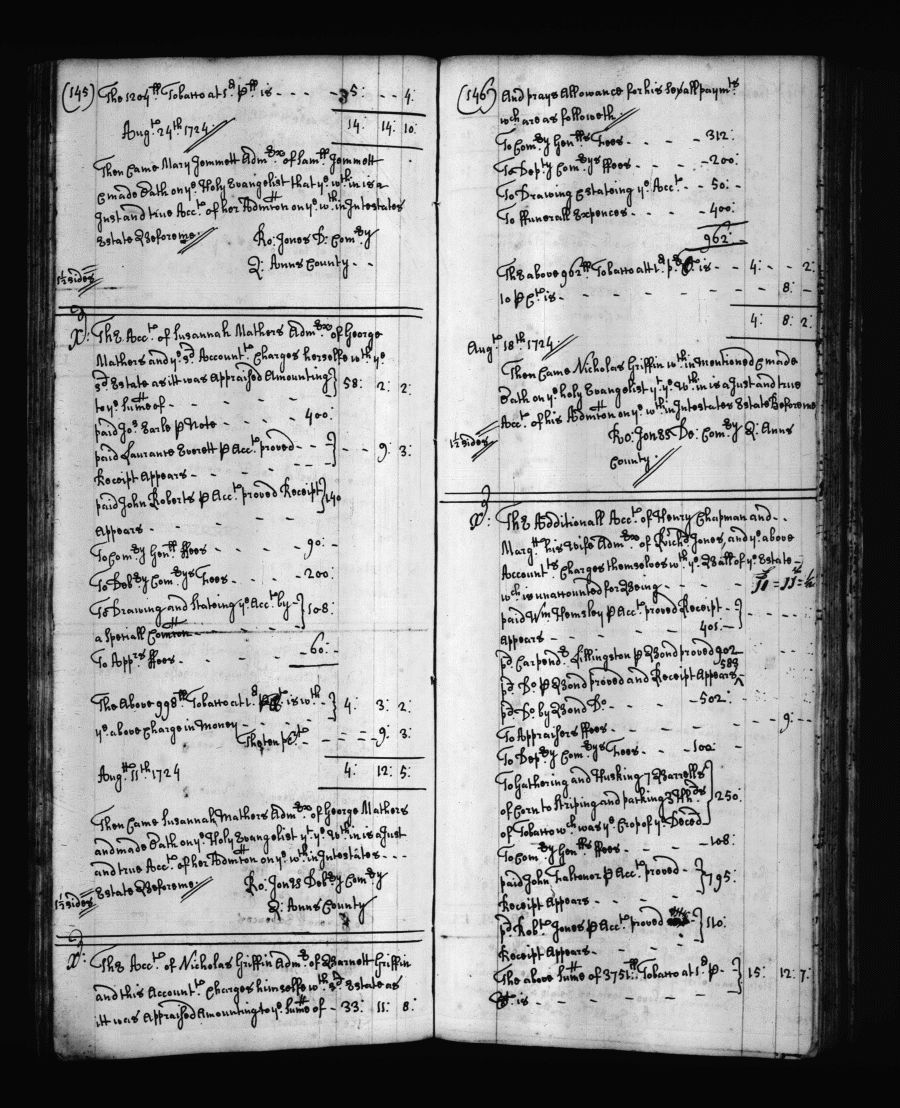 (145) The 1204 ll Tobacco at 1d. P ll is - - - - 5: - - 4:
14: 14: 10:
Augt. 24th 1724
Then Came Mary Jemmett Adm.x of Samll Jemmett
& made Oath on ye. Holy Evangelist that ye. wth.in is a
Just and true Acct. of her Admtron on ye. wth.in Intestates
Estate Before me.
Ro: Jones D: Comry
Q: Anns County - -
1½ sides
X: The Acct. of Susannah Mathers Adm.x of George
Mathers and ye. sd. Accountt. Charges herselfe wth ye
sd. Estate as itt was Appraised Amounting } 58: 2: 2:
to ye. sume of - - - - -
paid Jos. Earle P Note - - - - 400:
paid Laurance Everett P Acct. proved - - } - - 9: 3:
Receipt Appears - - - - -
paid John Roberts P Acct. proved Receipt } 140
Appears - - - - -
To Comry Genlls ffees - - - - 90: -
To Depty Comrys ffees - - - - 200:
To Drawing and Stateing ye. Acct. by } 108:
a Speciall Comron
To Apprs ffees - - - - 60: -
The Above 998 ll Tobacco at 1d. P is wth - } 4: 3: 2:
ye. above Charge in Money - - - -
The ten P Ct. - - - - - 9: 3:
4: 12: 5:
Augtt 11th 1724
Then Came Susannah Mathers Adm.x of George Mathers
and made Oath on ye. Holy Evangelist yt. ye. wth.in is a Just
and true Acct. of her Admtron on ye. wth.in Intestates - - -
Estate Before me.
Ro: Jones Depty Comry
Q: Anns County
1½ sides
X: The Acct. of Nicholas Griffin Adm.r of Barnett Griffin
and this Accountt. Charges himselfe wth. sd. Estate as
itt was Appraised Amounting to ye. Sume of - 33: 11: 8:
(146) And prays Allowance for his sevll paymts
wch are as followeth
To Comry Genlls ffees - - - - 312:
To Depty Comrys ffees - - - - 200: -
To Drawing & stateing ye. Acct. - - 50: -
To ffunerall Expences - - - - 400:
962:
The above 962 ll Tobacco att 1d. P is - - 4: - - 2:
10 P Ct. is - - - - - - - 8: -
4: 8: 2:
Augt. 18th 1724
Then Came Nicholas Griffin wth.in mentioned & made
Oath on ye. holy Evangelist yt. ye. wth.in is a Just and true
Acct. of his Admtron on ye. wth.in Intestates Estate Before me
Ro: Jones De: Comry Q: Anns
County
1½ sides
X: The Additionall Acct. of Henry Chapman and - -
Margt. his wife Adm.x of Richd. Jones, and ye. above
Accountts Charges themselves wth. ye. Ball of ye. Estate -
wch. is unattounted for Being - - - - - 11 = 11 = ½
paid Wm Hemsley P Acct. proved Receipt - }
Appears - - - - - 401: -
pd. Carpend. Lillingston P Bond proved 902
pd. Do. P Bond proved and Receipt Appears 583
pd. Do. by Bond Do. - - - 502: -
To Appraisers ffees - - - - - - 9: -
To Depty Comrys ffees - - - 100: -
To Gathering and Husking 7 Barrells
of Corn to Striping and parking 3 Hhds } 250:
of Tobacco wch. was ye. Crop of ye. Deced
To Comry Genlls ffees - - - - 108:
paid John ffalconer P Acct. proved - } 795:
Receipt Appears - - - -
pd. Robt. Jones P Acct. proved } 110:
Receipt Appears - - - -
The above Sume of 3751 ll Tobacco at 1d. P - } 15: 12: 7:
is - - - - -